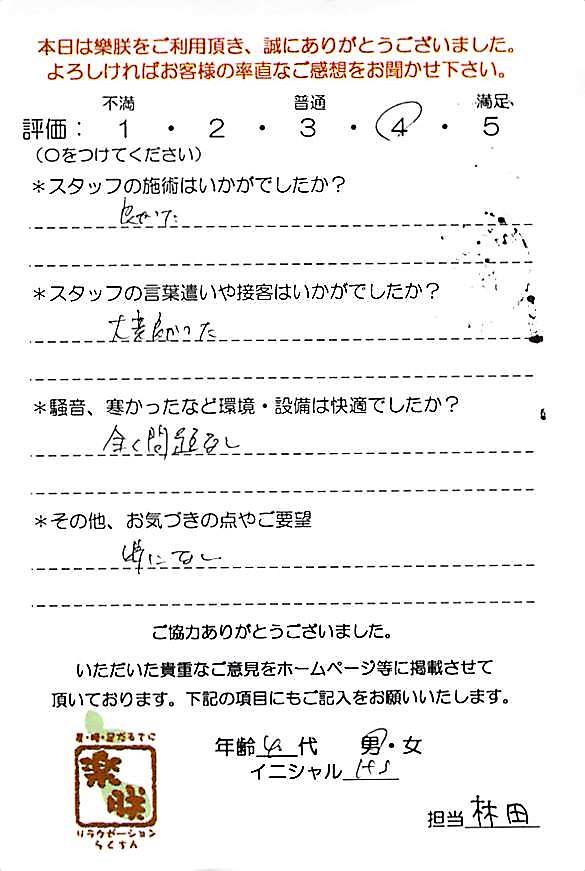 本日は樂朕をご利用頂き、誠にありがとうございました。
よろしければお客様の率直なご感想をお聞かせ下さい。
不満 普通 満足
評価： 1 ・ 2 ・ 3 ・ 4 ・ 5
（○をつけてください）
＊スタッフの施術はいかがでしたか？
良かった
＊スタッフの言葉遣いや接客はいかがでしたか？
大変良かった
＊騒音、寒かったなど環境・設備は快適でしたか？
全く問題なし
＊その他、お気づきの点やご要望
特になし
ご協力ありがとうございました。
いただいた貴重なご意見をホームページ等に掲載させて
頂いております。下記の項目にもご記入をお願いいたします。
年齢 代 男・女
イニシャル HS
樂朕
リラクゼーション
らくちん
担当 林田